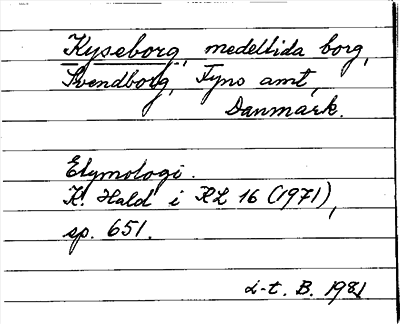 Kyseborg, medeltida borg,
Svendborg, Fyns amt,
Danmark.
Etymologi.
K. Hald i KL 16 (1971),
sp. 651.
L-t. B. 1981